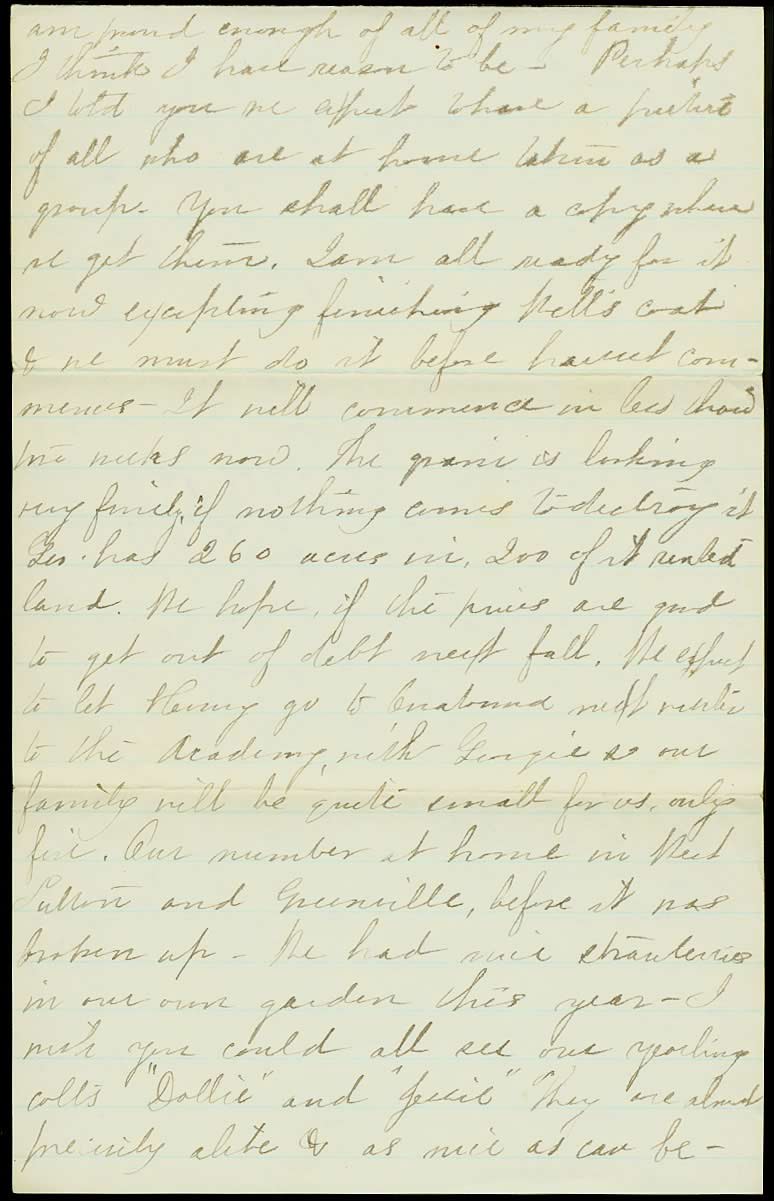 am proud enough of all of my family
I think I have reason to be - Perhaps
I told you we expect to have a picture
of all who are at home taken as a
group - You shall have a copy when
we get them. I am all ready for it
now excepting finishing Nell's coat
& we must do it before harvest com-
mences - It will commence in less than
two weeks now. The grain is looking
very finely, if nothing comes to destroy it
Geo. has 260 acres in, 200 of it rented
land. We hope, if the prices are good
to get out of debt next fall. We expect
to let Henry go to next winter
to the Academy, with Georgie so our
family will be quite small for us, only
five. Our number at home in West
Sutton and Greenville, before it was
broken up - We had nice strawberries
in our own garden this year - I
wish you could all see our yearling
colts "Dollie" and "Jessie" They are almost
precisely alike & as nice as can be -